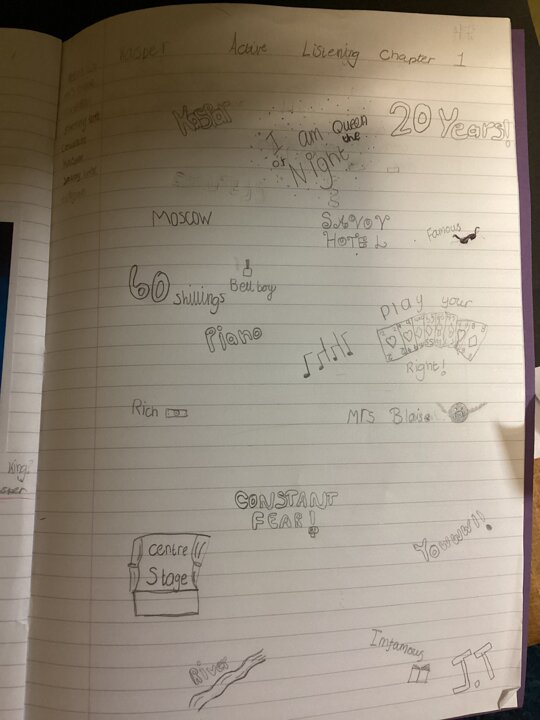 Kasper Active Listening Chapter 1
Kaspar
20 Years!
I am Queen
of the
Night
MOSCOW
SAVOY
HOTEL
Famous
60 shillings
Bell boy
Piano
Play your
Right!
Rich
Mrs Blaise
CONSTANT
FEAR!
Yowww!!
Centre
Stage
River
Infamous
J.T
King?